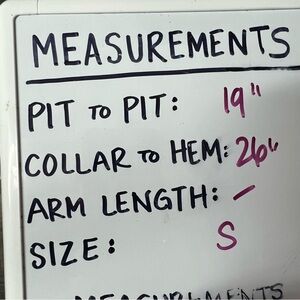 MEASUREMENTS
PIT TO PIT: 19"
COLLAR TO HEM: 26"
ARM LENGTH: -
SIZE: S
MEASUREMENTS